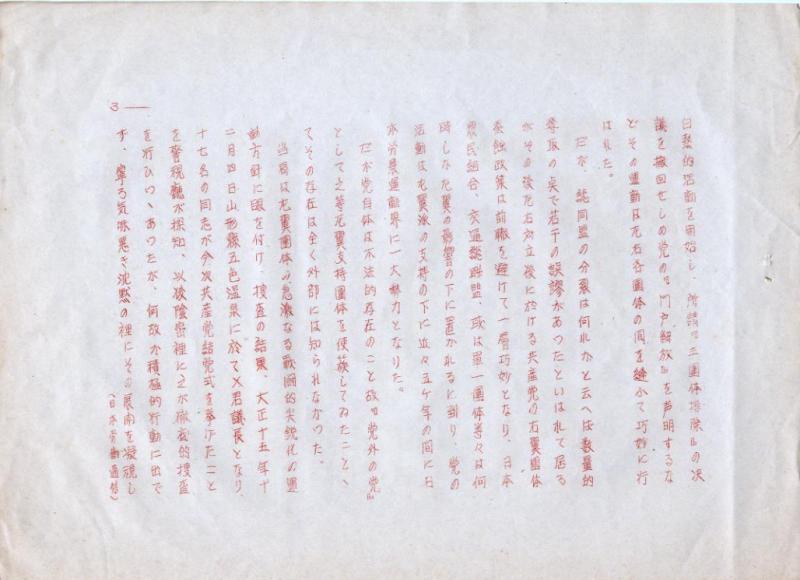 日慈的活動を開始し、所謂『三團体排除』の決
議を撤回せしめ党の『門戸解放』を声明するな
どその運動は左右各團体の間を縫ふて巧妙に行
はれた。
だが、総同盟の分裂は何れかと云へば数量的
尊取の点で若干の誤謬があつたといはれて居る
がその後左右対立後に於ける共産党の右翼團体
蚕蝕政策は前轍を避けて一層巧妙となり、日本
農民組合、交通総聯盟、或は單一團体等々は何
時しか左翼の影響の下に置かれるに到り、党の
活動は左翼派の支持の下に近々五ケ年の間に日
本労農運動界に一大勢力となりた。
だが党自体は不法的存在のこと故『党外の党』
として之等左翼支持團体を使嗾してゐたことゝ
てその存在は全く外部には知られなかつた。
当局は左翼團体の急激なる戰闘的尖鋭化の運
動方針に眼を付け、捜査の結果、大正十五年十
二月四日山形縣五色温泉に於てX君議長となり、
十七名の同志が今次共産党結党式を挙げたこと
を警視廳が探知、以後隠密裡に之が徹底的捜査
を行ひつゝあつたが、何故か積極的行動に出で
ず、寧ろ気味悪き沈黙の裡にその展開を凝視し
(日本労働通信)
3 —